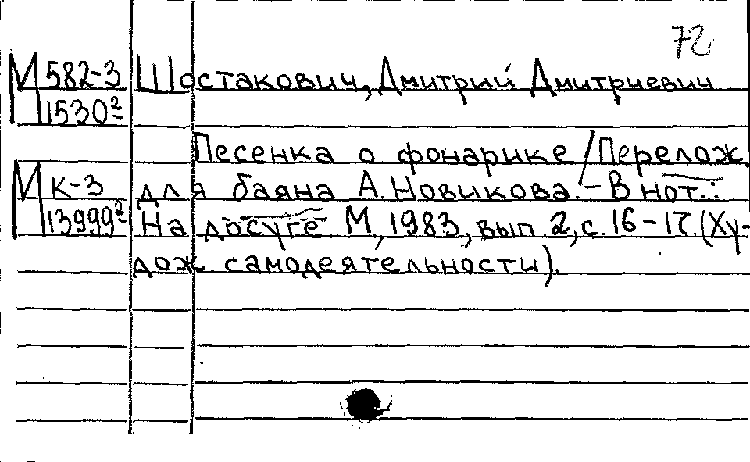 72
М 582-3 Шостакович, Дмитрий Дмитриевич
1530²
Песенка о фонарике / Перелож.
М К-3 для баяна А. Новикова. – В нот.:
13999² На досуге М, 1983, вып. 2, с. 16-17. (Ху-
дож самодеятельности).